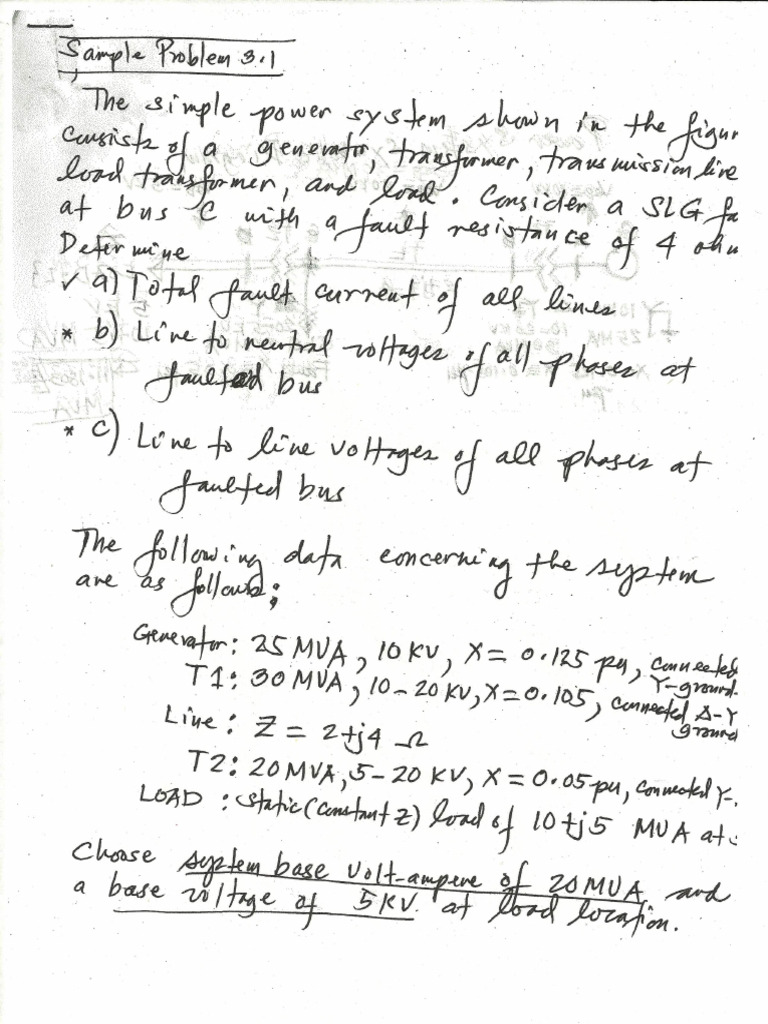 Sample Problem 3.1
The simple power system shown in the figur
consists of a generator, transformer, transmission line
load transformer, and load. Consider a SLG fa
at bus C with a fault resistance of 4 ohm
Determine
✓ a) Total fault current of all lines
* b) Line to neutral voltages of all phases at
faulted bus
* c) Line to line voltages of all phases at
faulted bus
The following data concerning the system
are as follows;
Generator: 25 MVA, 10 KV, X = 0.125 pu, connected
Y-ground.
T1: 30 MVA, 10-20 KV, X = 0.105, connected Δ-Y
ground
Line: Z = 2+j4 Ω
T2: 20 MVA, 5-20 KV, X = 0.05 pu, connected Y-.
LOAD : static (constant Z) load of 10+j5 MVA at
Choose system base volt-ampere of 20 MVA and
a base voltage of 5 KV. at load location.